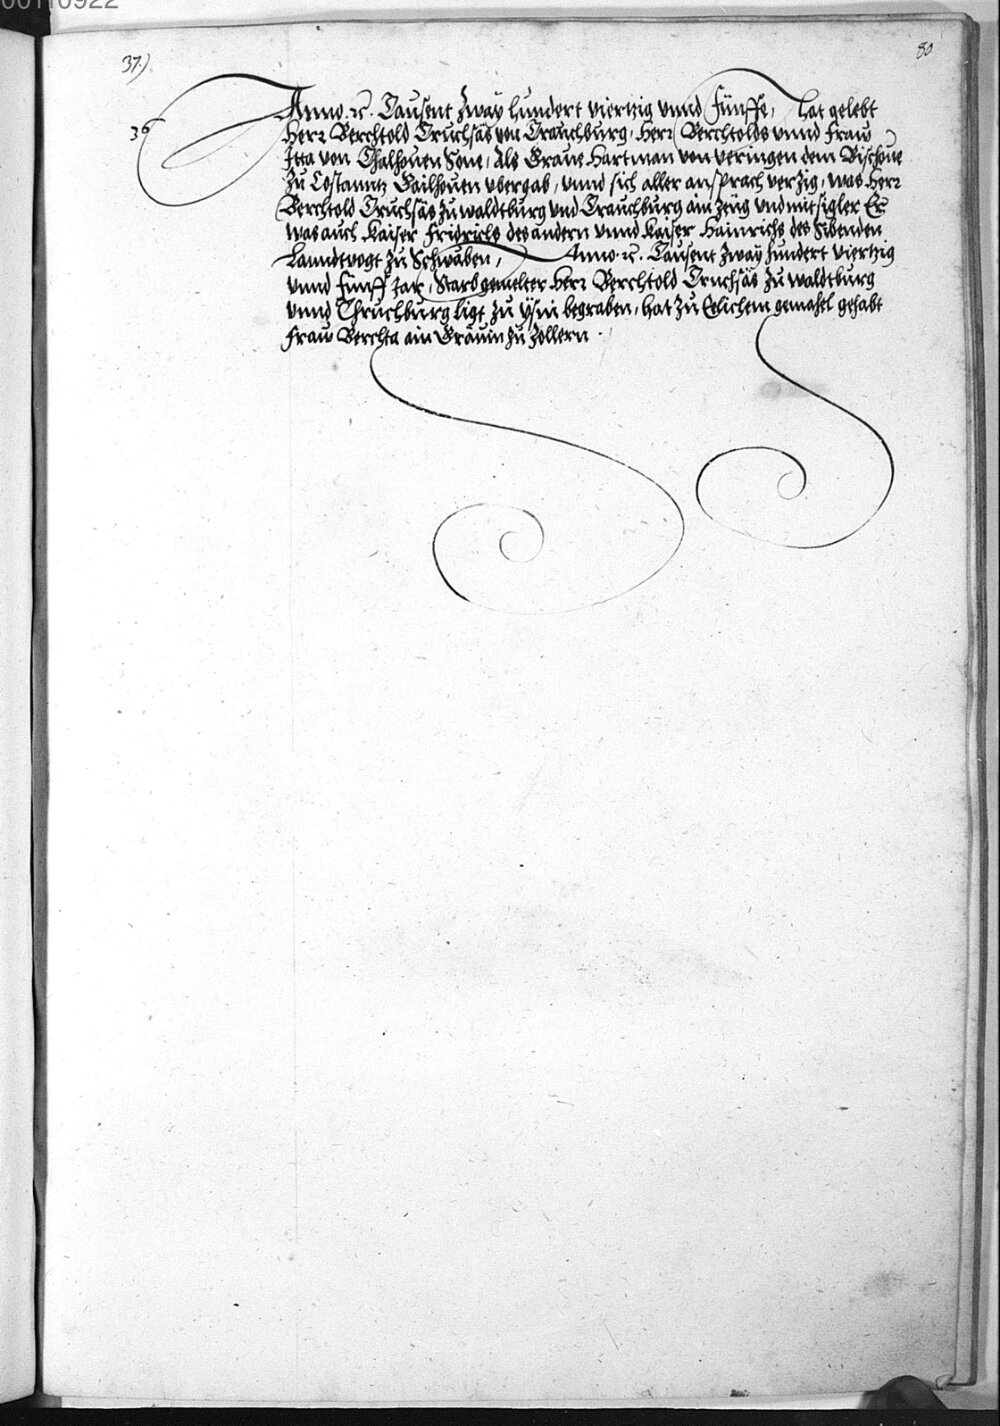 00110922
37.)
80
36
Anno ꝛc. Tausent zway hundert viertzig vnnd Fünffe, hat gelebt
Herr Berchtold Truchsäs von Trauchburg, Herr Berchtolds vnnd Fraw
Itta von Thalhouen Son, Als Graue Hartman von veringen dem Bischoue
zu Costanntz Gailhouen vbergab, vnnd sich aller ansprach verzig, was Herr
Berchtold Truchsäs zu waldtburg vnd Trauchburg ain zeug vnd mitsigler Er
was auch Kaiser Fridrichs des andern vnnd Kaiser Hainrichs des Sibenden
Lanndtvogt zu Schwaben, Anno ꝛc. Tausent zway hundert viertzig
vnnd Fünff Jar, Starb gemelter Herr Berchtold Truchsäs zu waldtburg
vnnd Thruchburg ligt zu ysni begraben, hat zu Eelichem gemahel gehabt
Fraw Berchta ain Gräuin zu Zollern.